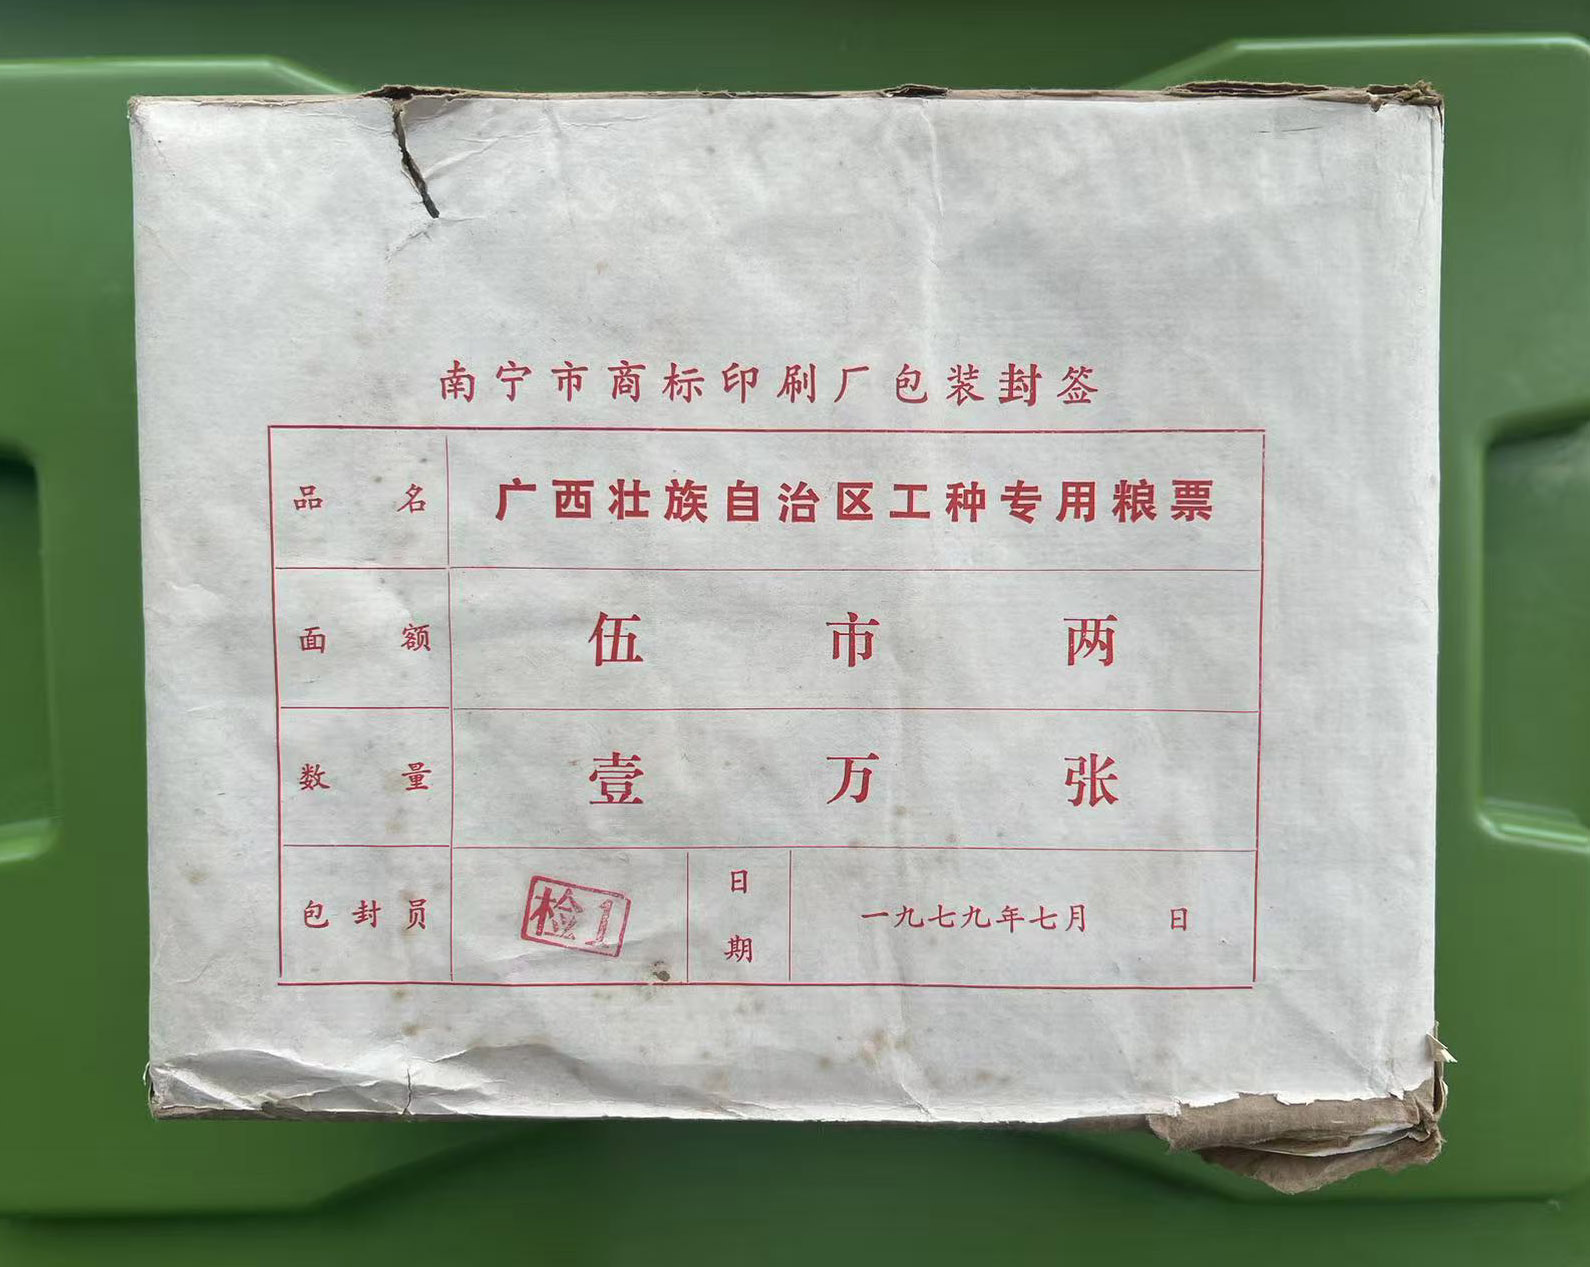 南宁市商标印刷厂包装封签
品名 广西壮族自治区工种专用粮票
面额 伍市两
数量 壹万张
包封员 检1 日期 一九七九年七月 日